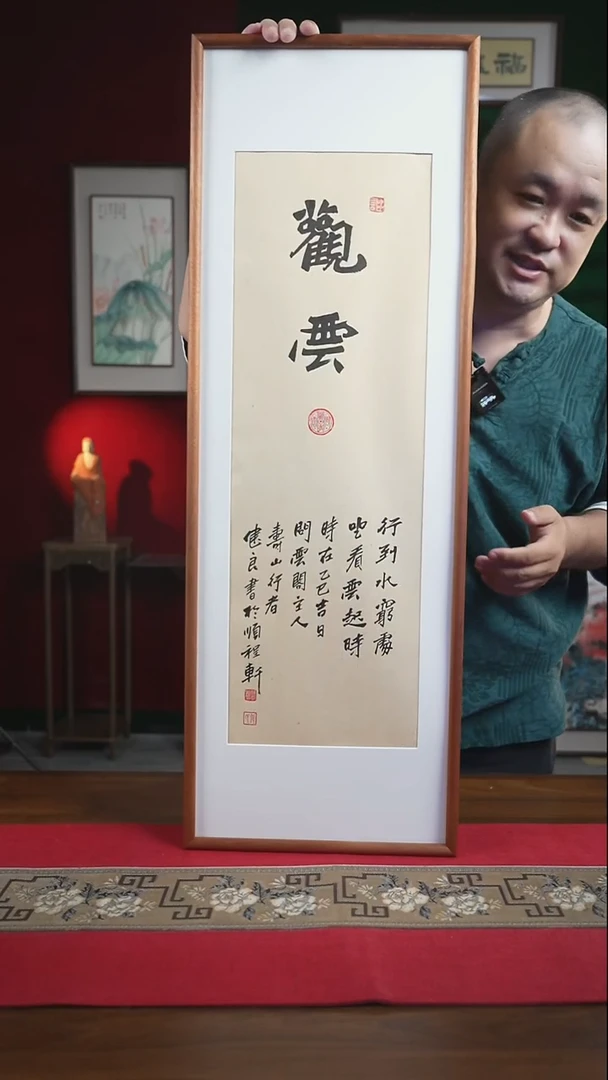 觀
雲
行到水窮處
坐看雲起時
時在乙巳吉日
問雲閣主人
壽山行者
建良書於順程軒
福